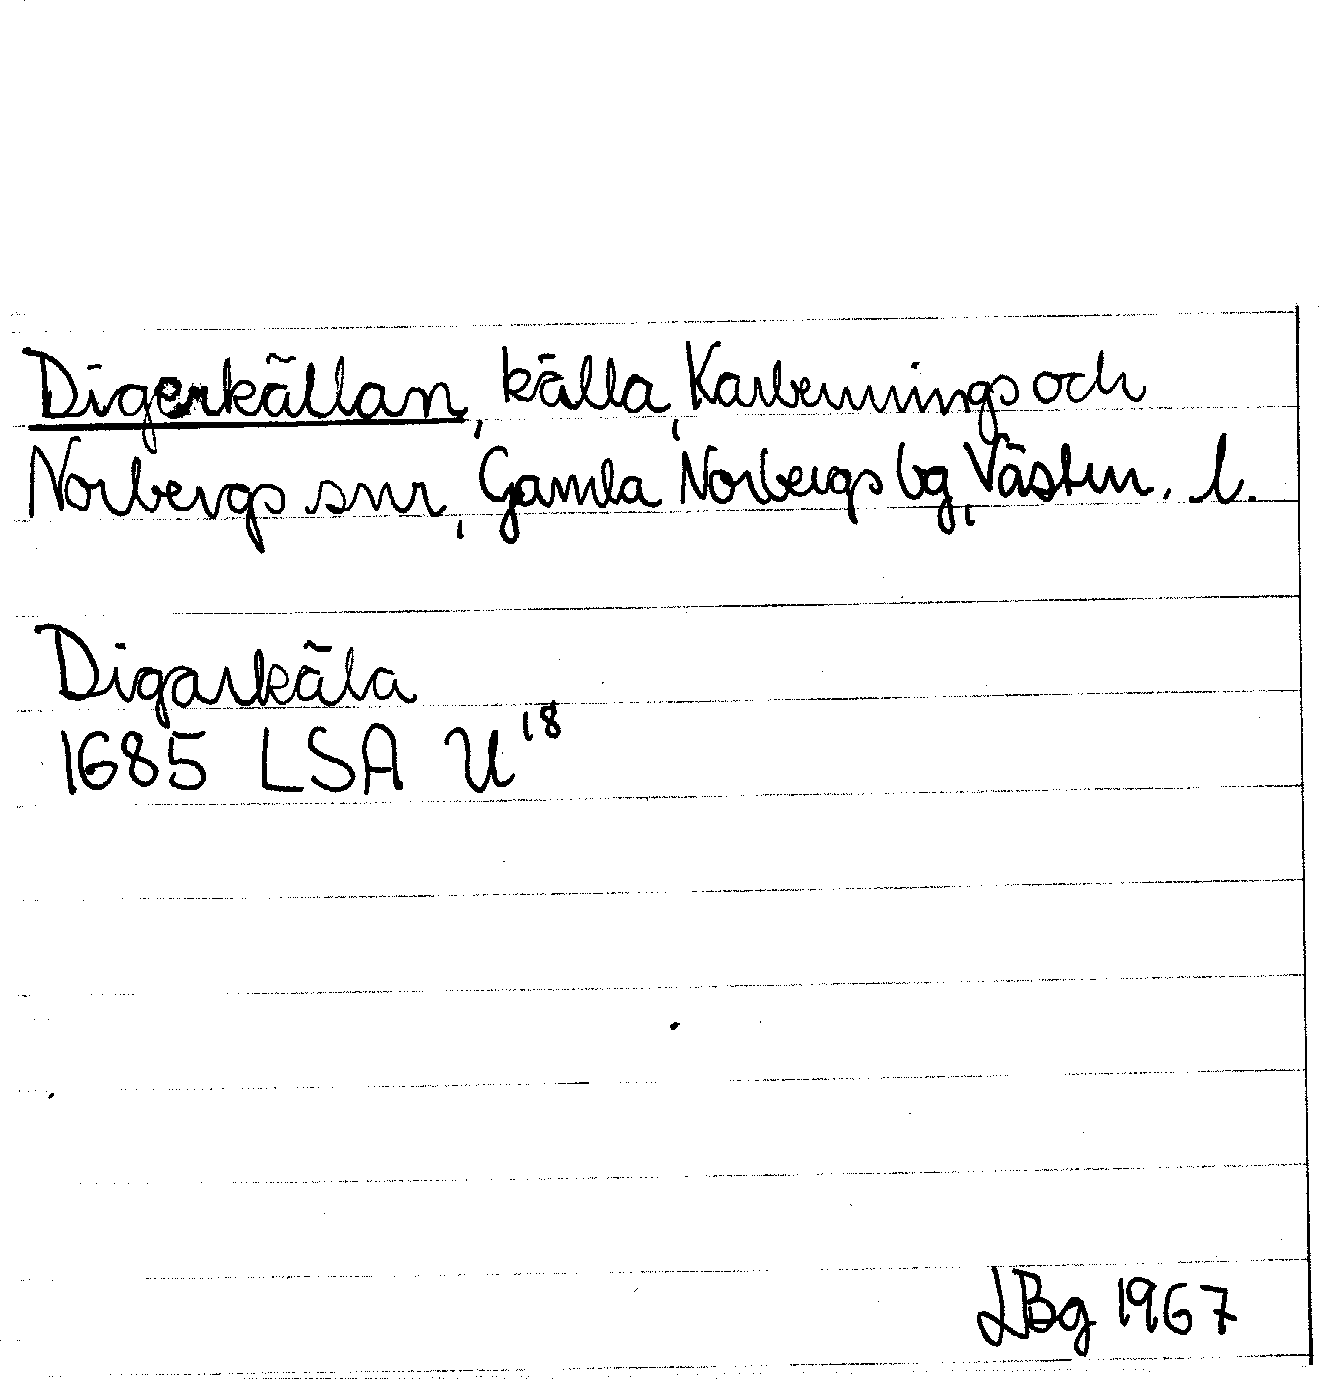 Digerkällan, källa, Karbennings och
Norbergs snr, Gamla Norbergs bg, Västm. l.
Digarkäla
1685 LSA U18
LBg 1967